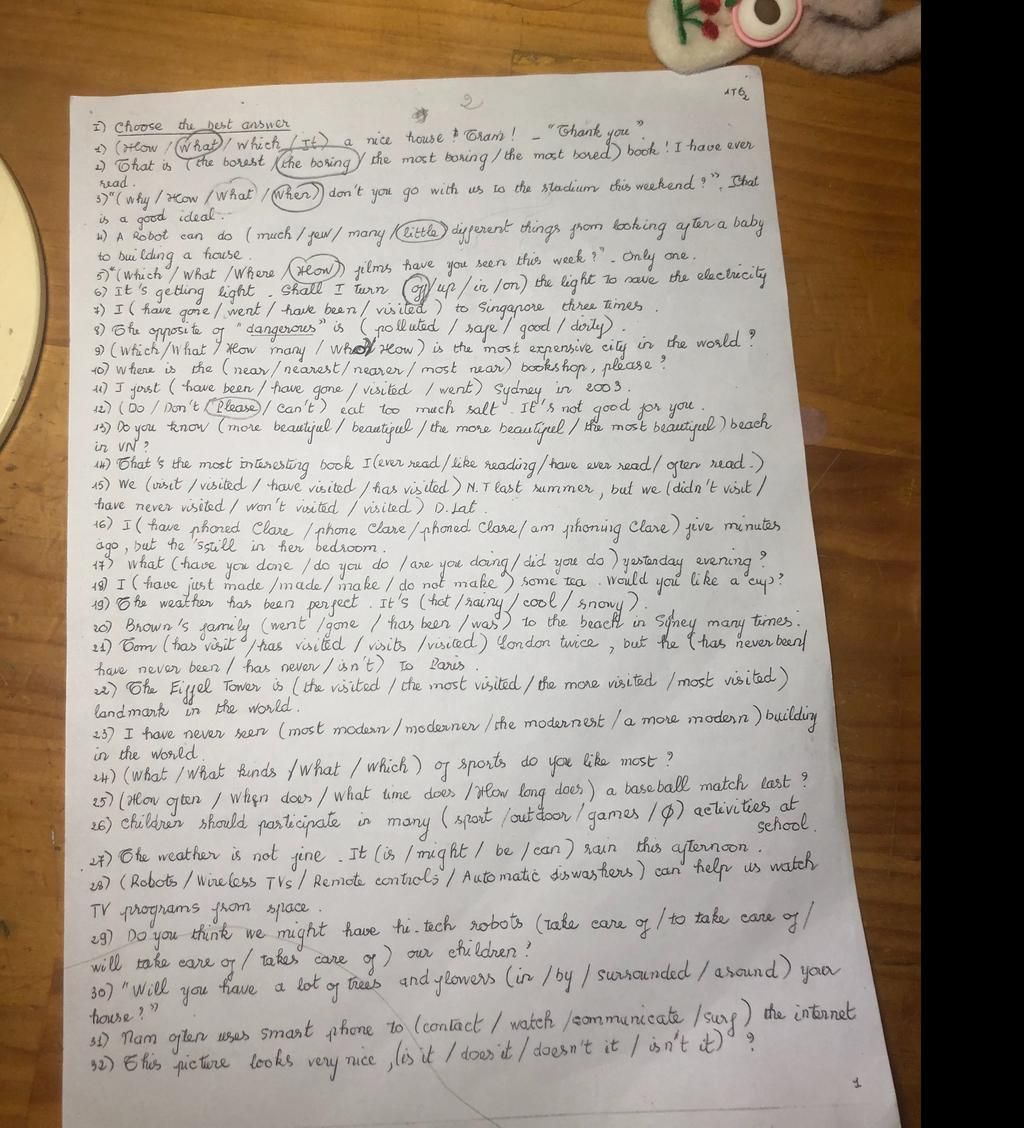 2
AT6_2
I) Choose the best answer
1) (How / What / Which / It) a nice house, Tram! - "Thank you".
2) That is (the borest / the boring / the most boring / the most bored) book! I have ever
read.
3) "(Why / How / What / When) don't you go with us to the stadium this weekend?". That
is a good ideal.
4) A Robot can do (much / few / many / little) different things from looking after a baby
to building a house.
5) "(Which / What / Where / How) films have you seen this week?". Only one.
6) It's getting light. Shall I turn (off / up / in / on) the light to save the electricity
7) I (have gone / went / have been / visited) to Singapore three times.
8) The opposite of "dangerous" is (polluted / safe / good / dirty).
9) (Which / What / How many / How) is the most expensive city in the world?
10) Where is the (near / nearest / nearer / most near) bookshop, please?
11) I first (have been / have gone / visited / went) Sydney in 2003.
12) (Do / Don't / Please / Can't) eat too much salt. It's not good for you.
13) Do you know (more beautiful / beautiful / the more beautiful / the most beautiful) beach
in VN?
14) That's the most interesting book I (ever read / like reading / have ever read / often read.)
15) We (visit / visited / have visited / has visited) N.T last summer, but we (didn't visit /
have never visited / won't visited / visited) D.Lat.
16) I (have phoned Clare / phone Clare / phoned Clare / am phoning Clare) five minutes
ago, but he 's still in her bedroom.
17) What (have you done / do you do / are you doing / did you do) yesterday evening?
18) I (have just made / made / make / do not make) some tea. Would you like a cup?
19) The weather has been perfect. It's (hot / rainy / cool / snowy).
20) Brown's family (went / gone / has been / was) to the beach in Sydney many times.
21) Tom (has visit / has visited / visits / visited) London twice, but he (has never been /
have never been / has never / isn't) to Paris.
22) The Eiffel Tower is (the visited / the most visited / the more visited / most visited)
landmark in the world.
23) I have never seen (most modern / moderner / the modernest / a more modern) building
in the world.
24) (What / What kinds / What / Which) of sports do you like most?
25) (How often / When does / What time does / How long does) a baseball match last?
26) Children should participate in many (sport / outdoor / games / Ø) activities at
school.
27) The weather is not fine. It (is / might / be / can) rain this afternoon.
28) (Robots / Wireless TVs / Remote controls / Automatic diswashers) can help us watch
TV programs from space.
29) Do you think we might have hi-tech robots (take care of / to take care of /
will take care of / takes care of) our children?
30) "Will you have a lot of trees and flowers (in / by / surrounded / around) your
house?"
31) Nam often uses smart phone to (contact / watch / communicate / surf) the internet
32) This picture looks very nice, (is it / does it / doesn't it / isn't it)?
1